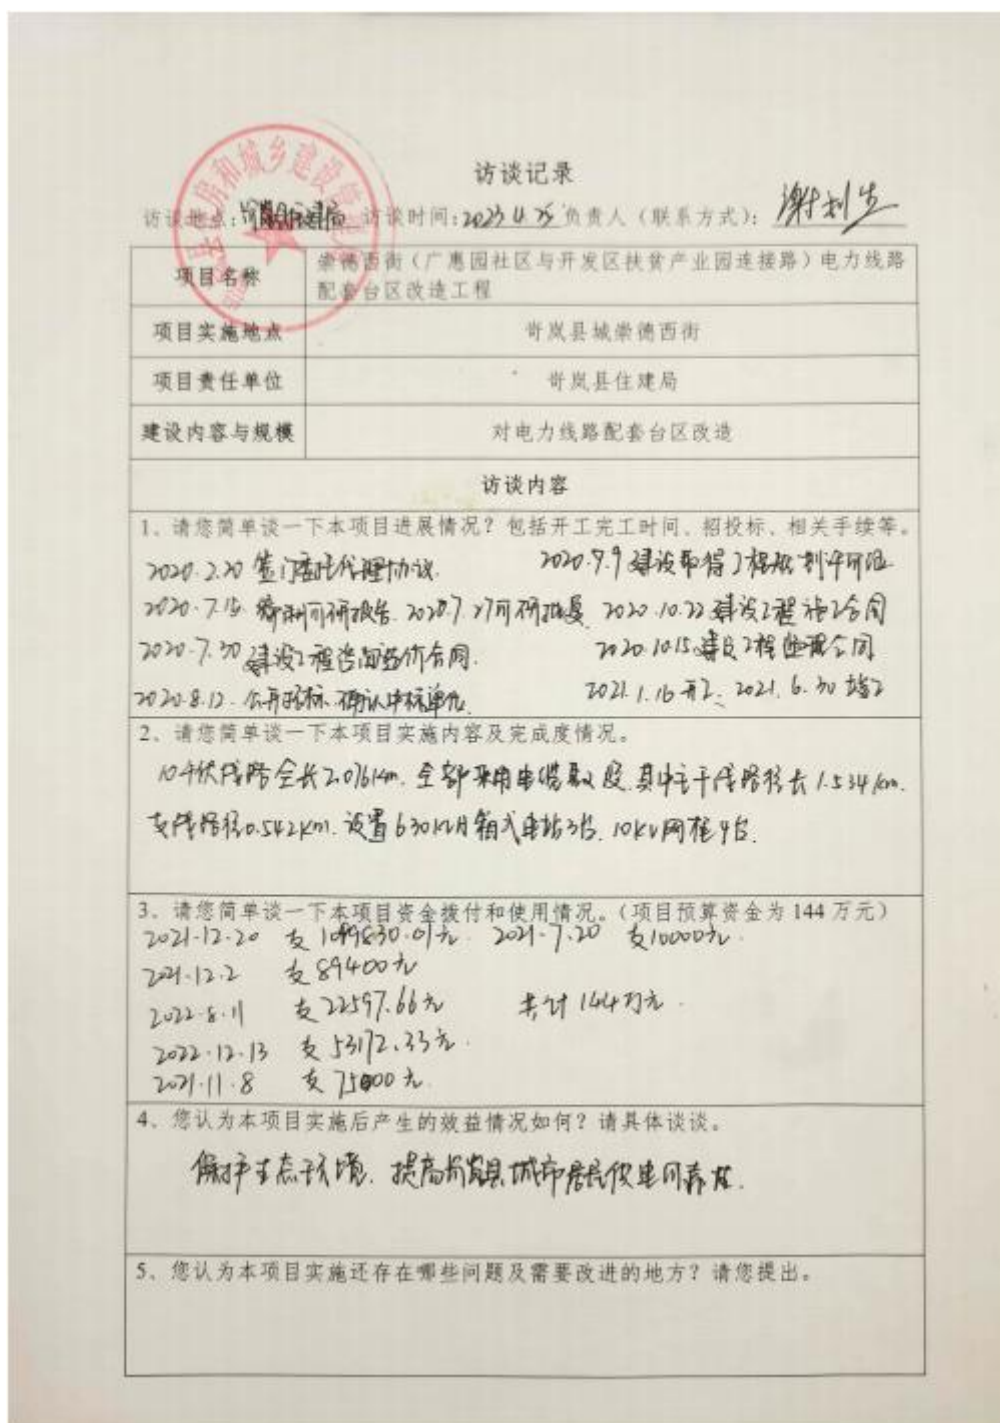 访谈记录
访谈地点:岢岚县住建局 访谈时间:2023.4.25 负责人（联系方式）:谢利生
房和城乡建设
项目名称 崇德西街（广惠园社区与开发区扶贫产业园连接路）电力线路
配套台区改造工程
项目实施地点 岢岚县城崇德西街
项目责任单位 岢岚县住建局
建设内容与规模 对电力线路配套台区改造
访谈内容
1、请您简单谈一下本项目进展情况？包括开工完工时间、招投标、相关手续等。
2020.2.20 签订委托代理协议. 2020.7.9 建设取得工程规划许可证
2020.7.15 编制可研报告. 2020.7.27可研批复 2020.10.22建设工程施工合同
2020.7.30 建设工程咨询造价合同. 2020.10.15建设工程监理合同
2020.8.12. 公开招标.确认中标单位. 2021.1.16开工、2021.6.30竣工
2、请您简单谈一下本项目实施内容及完成度情况。
10千伏线路全长2.076km. 全部采用电缆敷设.其中主干线路径长1.534km.
支线路径0.542km. 设置630kVA箱式电站3台. 10kV网柜4台.
3、请您简单谈一下本项目资金拨付和使用情况。（项目预算资金为144万元）
2021.12.20 支1099830.01元 2021.7.20 支10000元.
2021.12.2 支89400元
2022.8.11 支22597.66元 共计144万元.
2022.12.13 支53172.33元.
2021.11.8 支75000元
4、您认为本项目实施后产生的效益情况如何？请具体谈谈。
保护生态环境. 提高岢岚县城市居民供电可靠性.
5、您认为本项目实施还存在哪些问题及需要改进的地方？请您提出。